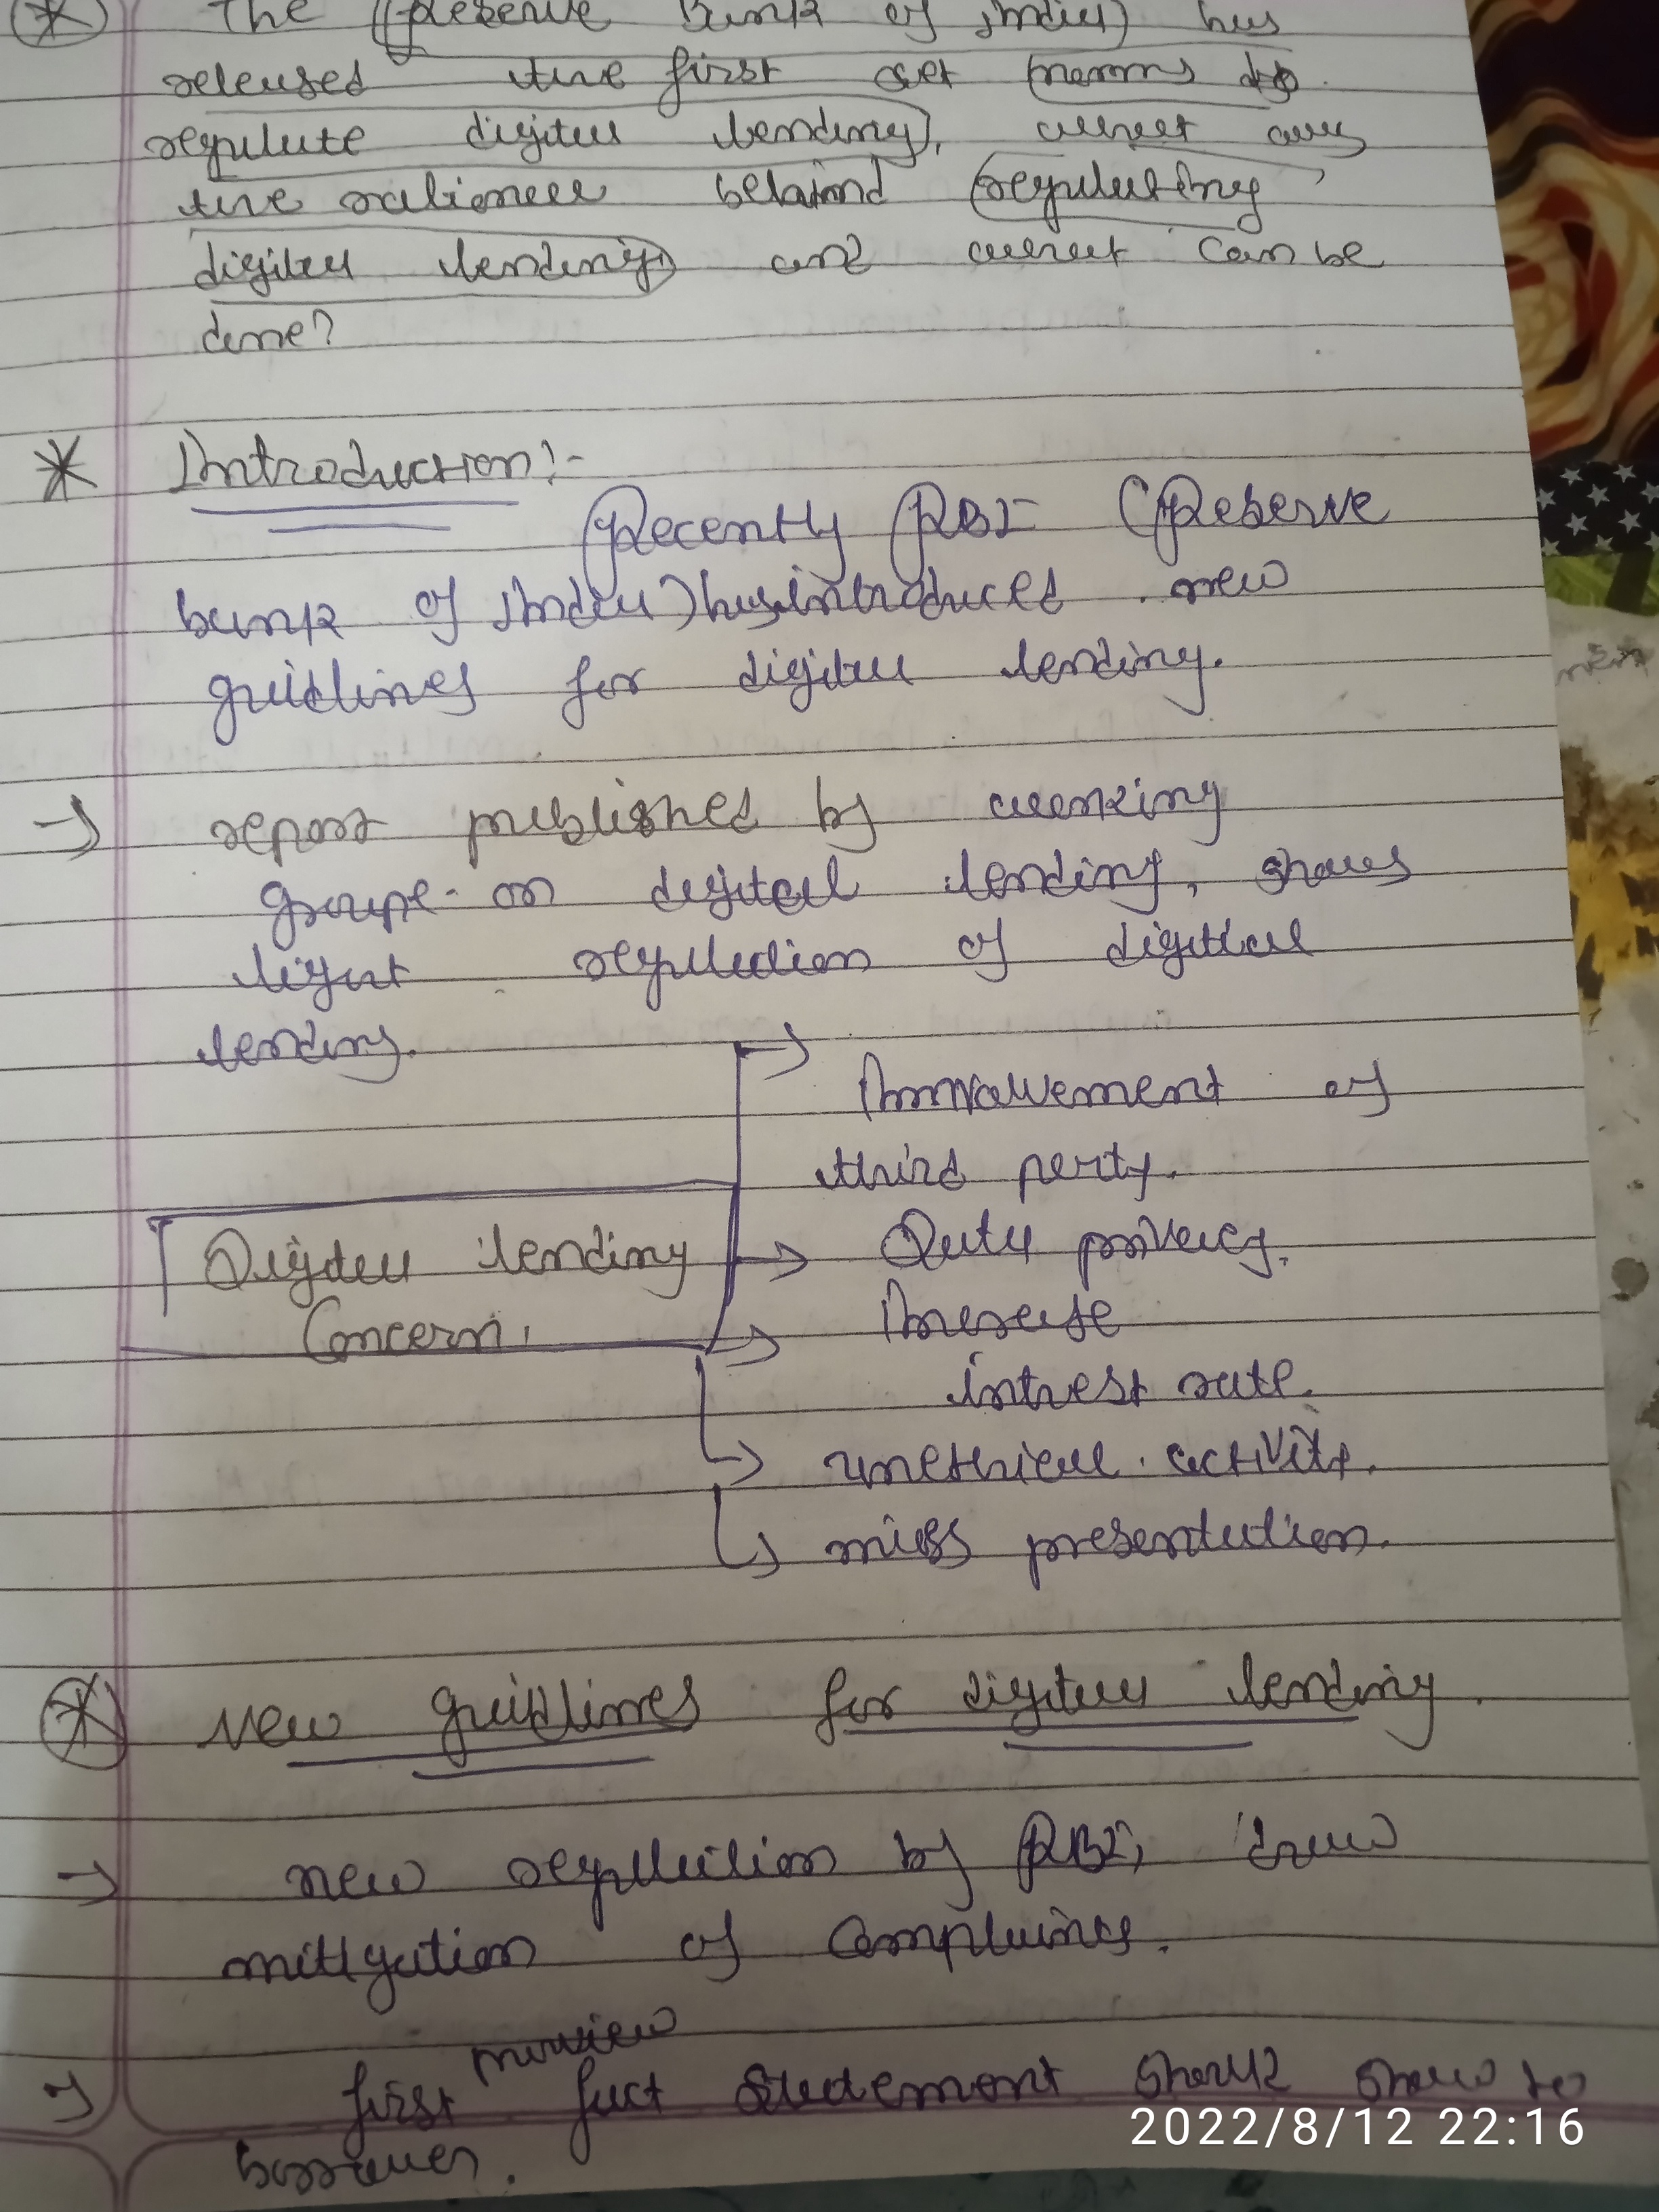 The (Reserve Bank of India) has
released the first set (norms to
regulate digital lending), what are
the rationale behaind (regulating
digital lending) and what can be
done?
* Introduction:-
Recently RBI (Reserve
bank of India) has introduced new
guidlines for digital lending.
→ report published by working
groupe on digital lending, shows
light regulation of digital
lending.
→ Innvolvement of
third party.
Digital lending → Data privacy.
Concern. → Increase
intrest rate.
→ unethical activity.
→ miss presentation.
* New guidlines for digital lending.
→ new regulation by RBI, draw
mittgation of complaines.
→ first fact statement should show to
borrower.
2022/8/12 22:16